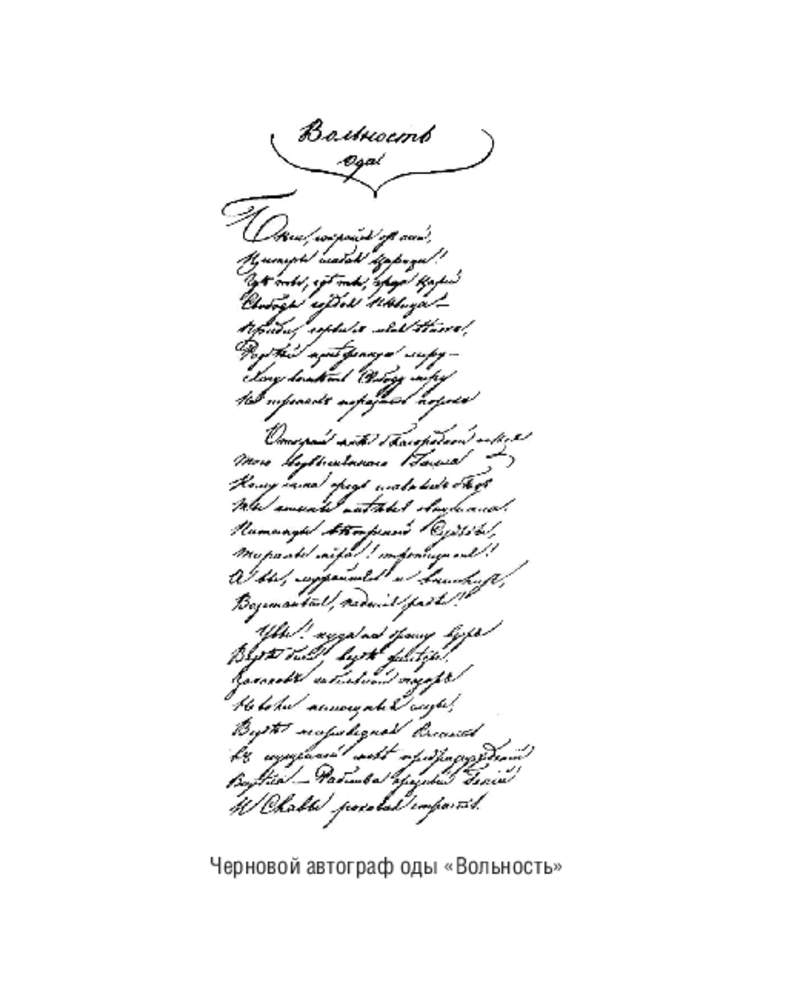 Вольность
Ода
Бѣги, сокройся отъ очей,
Цитеры слабая Царица!
Гдѣ ты, гдѣ ты, гроза Царей
Свободы гордая Пѣвица —
Приди, сорви съ меня вѣнокъ,
Разбей изнѣженную лиру —
Хочу воспѣть Свободу миру
На тронахъ поразить порокъ
Открой мнѣ благородный слѣдъ
Того возвышеннаго Галла
Кому сама средь славныхъ бѣдъ
Ты гимны смѣлыя внушала.
Питомцы вѣтреной Судьбы,
Тираны міра! трепещите!
А вы, мужайтесь и внемлите,
Возстаньте, падшіе рабы!
Увы! куда ни брошу взоръ
Вездѣ бичи, вездѣ желѣзы,
Законовъ гибельный позоръ
Неволи немощныя слезы;
Вездѣ неправедная Власть
Въ сгущенной мглѣ предразсужденій
Возсѣла — Рабства грозный Геній
И Славы роковая страсть.
Черновой автограф оды «Вольность»